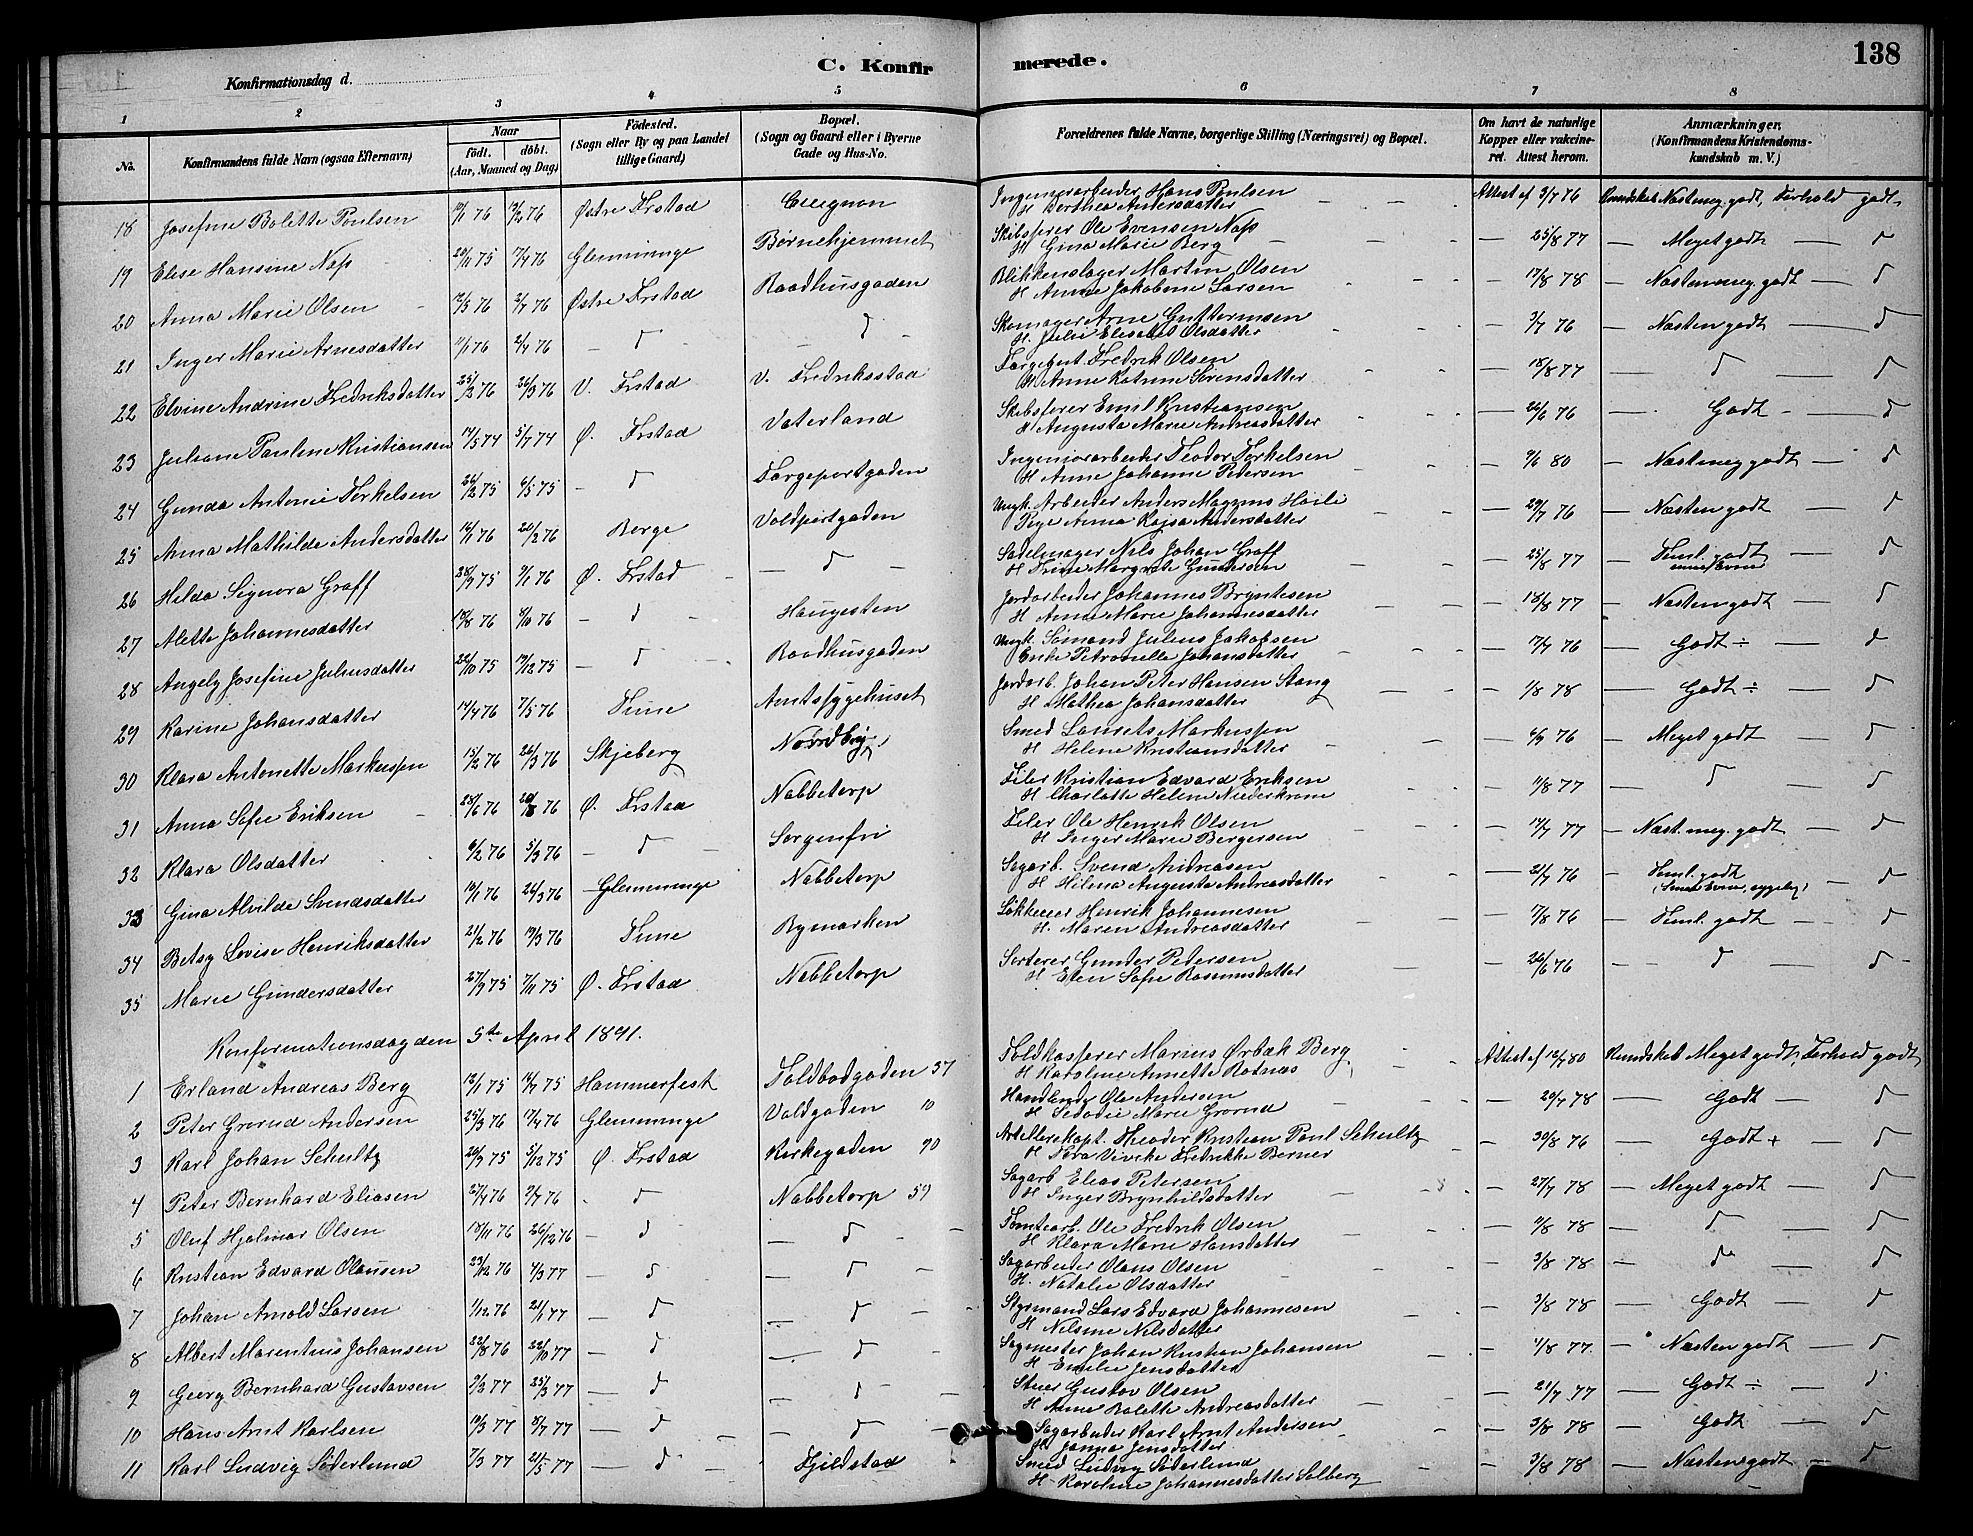 138
Konfirmationsdag d.
C. Konfirmerede.
1 2 3 4 5 6 7 8
No.
Konfirmandens fulde Navn (ogsaa Efternavn)
Naar
født. døbt.
(Aar, Maaned og Dag)
Fødested.
(Sogn eller By og paa Landet
tillige Gaard)
Bopæl.
(Sogn og Gaard eller i Byerne
Gade og Hus-No.
Forældrenes fulde Navne, borgerlige Stilling (Næringsvei) og Bopæl.
Om havt de naturlige
Kopper eller vakcine-
ret. Attest herom.
Anmærkninger.
(Konfirmandens Kristendoms-
kundskab m. V.)
18 Josefine Bolette Poulsen 76 76 Østre Frstad Hans Poulsen
H Berthea Andersdatter Attest af 3/7 76 Kundskab Næsten meg. godt, Forhold godt
19 Elise Hansine Nap 75 76 Glemminge Børnehjemmet Skibsfører Ole Evensen Nap
H Gina Marie Berg 25/8 77 Meget godt d
20 Anna Marie Olsen 76 76 Østre Frstad Raadhusgaden Blikkenslager Martin Olsen
H Anne Jakobine Larsen 17/8 78 Næsten meg godt d
21 Inger Marie Arnesdatter 76 76 d d Skomager Arne Guttormsen
H. Julie Elisabet Olsdatter 3/7 76 Næsten godt d
22 Elvine Andrine Fredriksdatter 25/2 76 26/3 76 V. Frstad V. Fredriksstad Fredrik Olsen
H Anne Katrine Sørensdatter 18/8 77 d d
23 Juliane Pauline Kristiansen 14/5 74 5/7 74 Ø. Frstad Vaterland Skibsfører Emil Kristiansen
H Augusta Marie Andreasdatter 26/6 76 Godt d
24 Gunda Antonie Torkelsen 26/2 75 6/5 75 d Færgeportgaden Ingeniorarbeider Teodor Torkelsen
H Anne Johanne Petersen 9/6 80 Næsten meg godt d
25 Anna Mathilde Andersdatter 16/1 76 20/2 76 Borge Voldportgaden Ungk. Arbeider Anders Magnus Høili
Pige Anna Kajsa Andersdatter 29/7 76 Næsten godt d
26 Hilda Signora Graff 28/9 75 9/1 76 Ø. Frstad d Sadelmager Nils Johan Graff
H Trine Margrete Gundersen 25/8 77 Teml. godt d
27 Alette Johannesdatter 18/8 76 76 d Haugesten Jordarbeider Johannes Bryntesen
H. Anne Marie Johannesdatter 18/8 77 Næsten godt d
28 Angely Josefine Juliusdatter 22/10 75 19/12 75 d Raadhusgaden Ungk. Sømand Julius Jakobsen
Enke Petronelle Johansdatter 17/7 76 Godt ÷ d
29 Karine Johansdatter 14/4 76 7/5 76 Tune Amtssygehuset Jordarb. Johan Peter Hansen Stang
H Mathea Johansdatter 1/8 78 Godt ÷ d
30 Klara Antonette Markussen 15/2 76 26/3 76 Skjeberg Nordby Smed Laurits Markussen
H Helene Kristiansdatter 4/9 76 Meget godt d
31 Anna Sofie Eriksen 28/6 76 20/8 76 Ø. Frstad Nabbetorp Filer Kristian Edvard Eriksen
H Charlotte Helene Niederkrone 11/8 77 d d
32 Klara Olsdatter 6/2 76 5/3 76 d Sorgenfri Filer Ole Henrik Olsen
H Inger Marie Børgersen 17/7 77 Næst. meg. godt d
33 Gina Alvilde Svendsdatter 16/1 76 26/3 76 Glemminge Nabbetorp Sagarb. Svend Andreasen
H Hilma Augusta Andreasdatter 21/7 76 Teml. godt d
34 Betsy Lovise Henriksdatter 21/2 76 19/3 76 Tune Bymarken Henrik Johannesen
H. Maren Andreasdatter 7/8 76 Teml. godt d
35 Marie Gundersdatter 27/9 75 7/11 75 Ø. Frstad Nabbetorp Sorterer Gunder Pedersen
H Elen Sofie Rasmusdatter 26/6 76 d d
Konfirmationsdag den 5te April 1891.
1 Erland Andreas Berg 12/1 75 14/7 75 Hammerfest Toldbodgaden 57 Toldkasserer Marius Ørbæk Berg
H Karoline Annette Rotnæs Attest af 12/7 80 Kundskab Meget godt, Forhold godt
2 Peter Grorud Andersen 25/3 76 17/4 76 Glemminge Voldgaden 10 Handlende Ole Andersen
H Marie Grorud 20/7 78 Godt d
3 Karl Johan Schultz 20/9 75 5/12 75 Ø. Frstad Kirkegaden 90 Artillerikapt. Theodor Kristian Paul Schultz
H Nora Vivike Fredrikke Berner 30/8 76 Godt + d
4 Peter Bernhard Eliasen 27/4 76 9/7 76 d Nabbetorp 59 Sagarb Elias Petersen
H Inger Brynhildsdatter 27/7 78 Meget godt d
5 Oluf Hjalmar Olsen 18/11 76 26/12 76 d d Tomtearb. Ole Fredrik Olsen
H Klara Marie Hansdatter 78 d d
6 Kristian Edvard Olausen 23/12 76 4/3 77 d d Sagarbeider Olaus Olsen
H. Natalie Olsdatter 3/8 78 d d
7 Johan Arnold Larsen 1/12 76 21/1 77 d d Styrmand Lars Edvard Johannesen
H Nilsine Nilsdatter 3/8 78 Godt d
8 Albert Marentius Johansen 22/8 76 22/10 77 d d Sagmester Johan Kristian Johansen
H Emilie Jensdatter 1/8 77. Næsten godt d
9 Georg Bernhard Gustavsen 9/3 77 25/3 77 d d Stuer Gustav Olsen
H Anne Bolette Andreasdatter 21/7 77 Godt ÷ d
10 Hans Arnt Karlsen 19/3 77 8/7 77 d d Sagarbeider Karl Arnt Andersen
H Janna Jensdatter 3/8 78 Godt d
11 Karl Ludvig Søderlund 7/3 77 21/5 77 d Fjeldstad Smed Ludvig Søderlund
H Karoline Johannesdatter Solberg 3/8 78 Næsten godt d